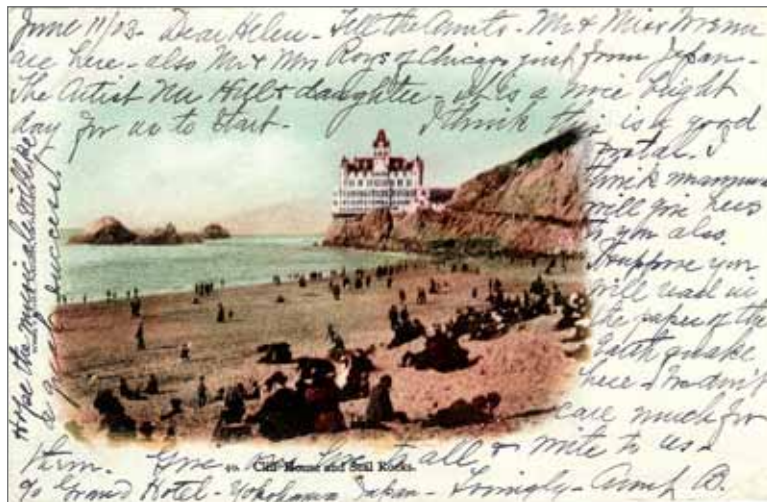 June 11/03 - Dear Helen - Tell the Aunts - Mr & Miss
are here - also Mr & Mrs Roys of Chicago just from Japan -
The Artist Mr Hill & daughter - It is a nice bright
day for us to start - I think this is a good
postal. I
think
will give this
to you also.
I suppose you
will read in
the papers of the
Earthquake
here - I don't
care much for
them. Give our love to all & write to us -
% Grand Hotel - Yokohama Japan - Lovingly - Aunt B.
Hope the musicale will be
a great success.
40. Cliff House and Seal Rocks.